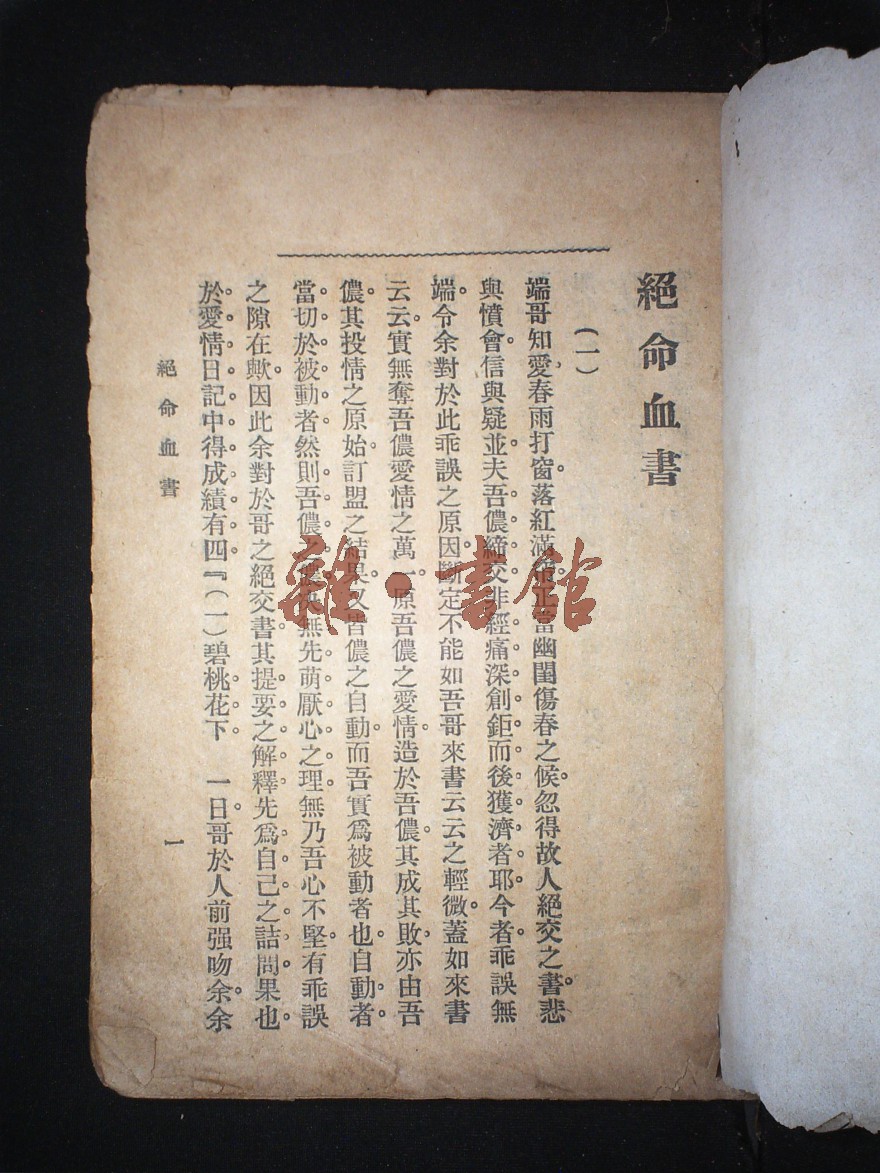 絕命血書
(一)
端哥知愛春雨打窗。落紅滿當幽閨傷春之候。忽得故人絕交之書。悲
與憤會。信與疑並。夫吾儂締交。非經痛深創鉅而後獲濟者耶。今者乖誤無
端。令余對於此乖誤之原因。斷定不能如吾哥來書云云之輕微。蓋如來書
云云。實無奪吾儂愛情之萬一。原吾儂之愛情。造於吾儂。其成其敗。亦由吾
儂。其投情之原始。訂盟之結果。又皆儂之自動。而吾實爲被動者也。自動者
當切於被動者。然則吾儂無先萌厭心之理。無乃吾心不堅。有乖誤
之隙在歟。因此余對於哥之絕交書。其提要之解釋。先爲自己之詰問。果也。
於愛情日記中得成績有四。『(一)碧桃花下。 一日哥於人前强吻余。余
絕命血書
一
雜·書館